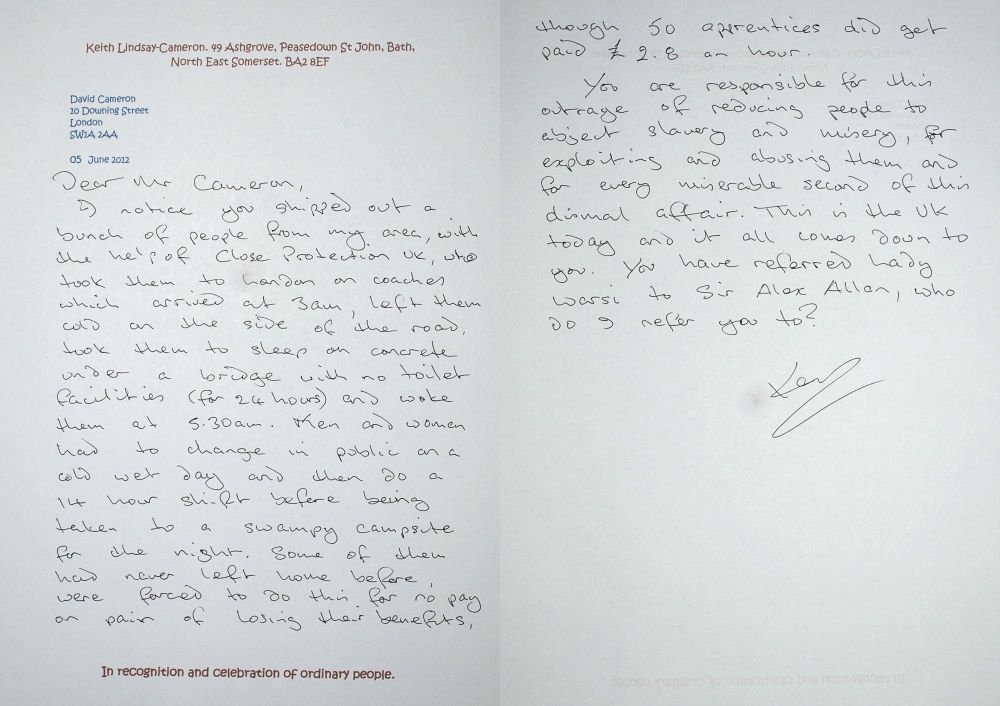 Keith Lindsay-Cameron. 49 Ashgrove, Peasedown St John, Bath,
North East Somerset. BA2 8EF
David Cameron
10 Downing Street
London
SW1A 2AA
05 June 2012
Dear Mr Cameron,
I notice you shipped out a
bunch of people from my area, with
the help of Close Protection UK, who
took them to London on coaches
which arrived at 3am, left them
cold on the side of the road,
took them to sleep on concrete
under a bridge with no toilet
facilities (for 24 hours) and woke
them at 5.30am. Men and women
had to change in public on a
cold wet day and then do a
14 hour shift before being
taken to a swampy campsite
for the night. Some of them
had never left home before,
were forced to do this for no pay
on pain of losing their benefits,
In recognition and celebration of ordinary people.
though 50 aprentices did get
paid £2.8 an hour.
You are responsible for this
outrage of reducing people to
abject slavery and misery, for
exploiting and abusing them and
for every miserable second of this
dismal affair. This is the UK
today and it all comes down to
you. You have referred Lady
Warsi to Sir Alex Allan, who
do I refer you to?